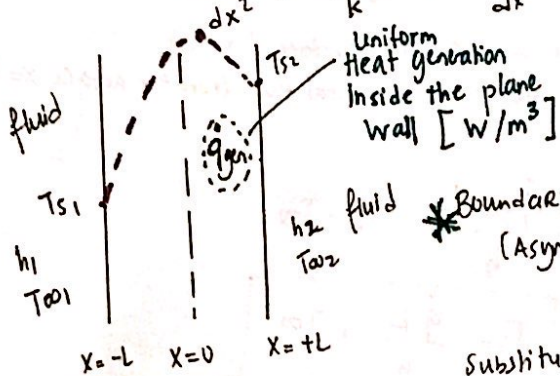 dx²
k
dx
Ts2
uniform
Heat generation
Inside the plane
wall [W/m³]
fluid
qgen
Ts1
h1
T∞1
h2
T∞2
fluid
* Boundar
(Asy
x = -L
x = 0
x = +L
Substitu